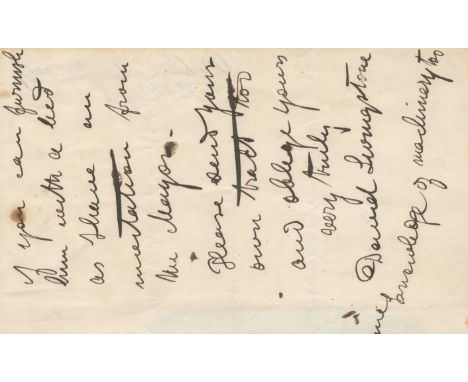 if you can furnish
him with a bed
as I have an
invitation from
the Mayor.
Please send your
own trap too
and oblige yours
very truly
David Livingstone
knowledge of machinery to